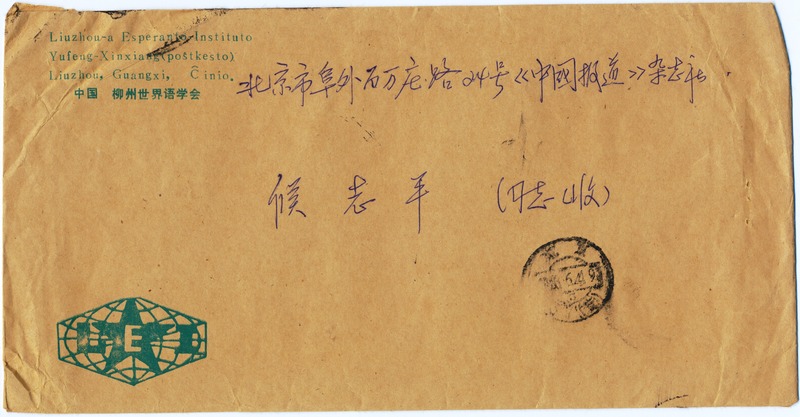 Liuzhou-a Esperanto-Instituto
Yufeng-Xinxiang(poŝtkesto)
Liuzhou, Guangxi, Ĉinio.
中国 柳州世界语学会
北京市阜外百万庄路24号《中国报道》杂志社.
侯 志 平 (同志收)
L E I